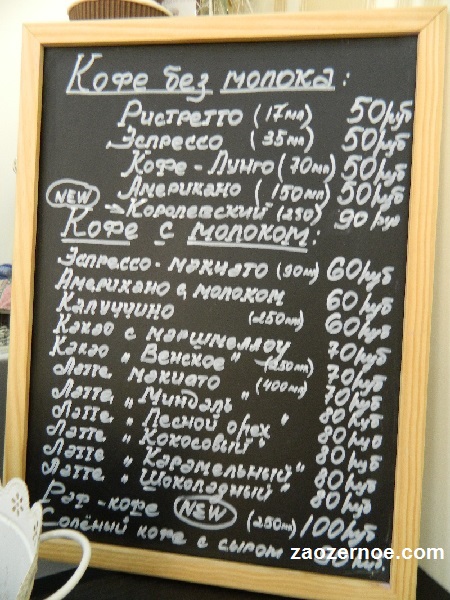 Кофе без молока:
Ристретто (17мл) 50руб
Эспрессо (35мл) 50руб
Кофе-Лунго (70мл) 50руб
Американо (150мл) 50руб
NEW Королевский (250) 90руб
Кофе с молоком:
Эспрессо-макиато (90мл) 60руб
Американо с молоком 60руб
Капуччино (250мл) 60руб
Какао с маршмеллоу 70руб
Какао "Венское" (250мл) 70руб
Латте макиато (400мл) 70руб
Латте "Миндаль" 80руб
Латте "Лесной орех" 80руб
Латте "Кокосовый" 80руб
Латте "Карамельный" 80руб
Латте "Шоколадный" 80руб
Раф-кофе NEW (250мл) 100руб
Солёный кофе с сыром
zaozernoe.com